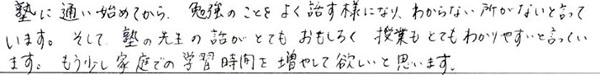 塾に通い始めてから、勉強のことをよく話す様になり、わからない所がないと言って
います。そして、塾の先生の話がとてもおもしろく授業もとてもわかりやすいと言ってい
ます。もう少し家庭での学習時間を増やして欲しいと思います。